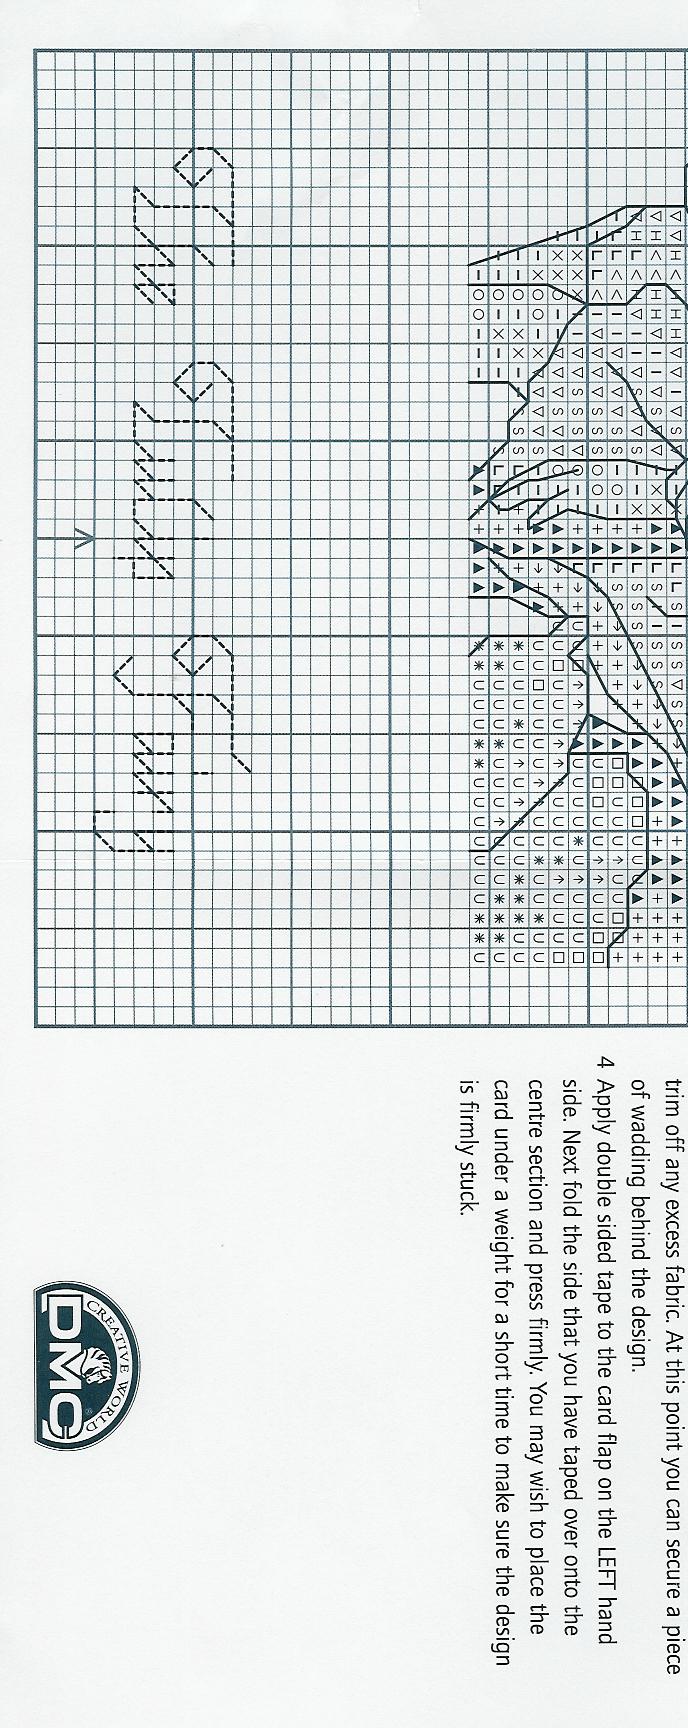 trim off any excess fabric. At this point you can secure a piece
of wadding behind the design.
4 Apply double sided tape to the card flap on the LEFT hand
side. Next fold the side that you have taped over onto the
centre section and press firmly. You may wish to place the
card under a weight for a short time to make sure the design
is firmly stuck.
CREATIVE WORLD
DMC
®